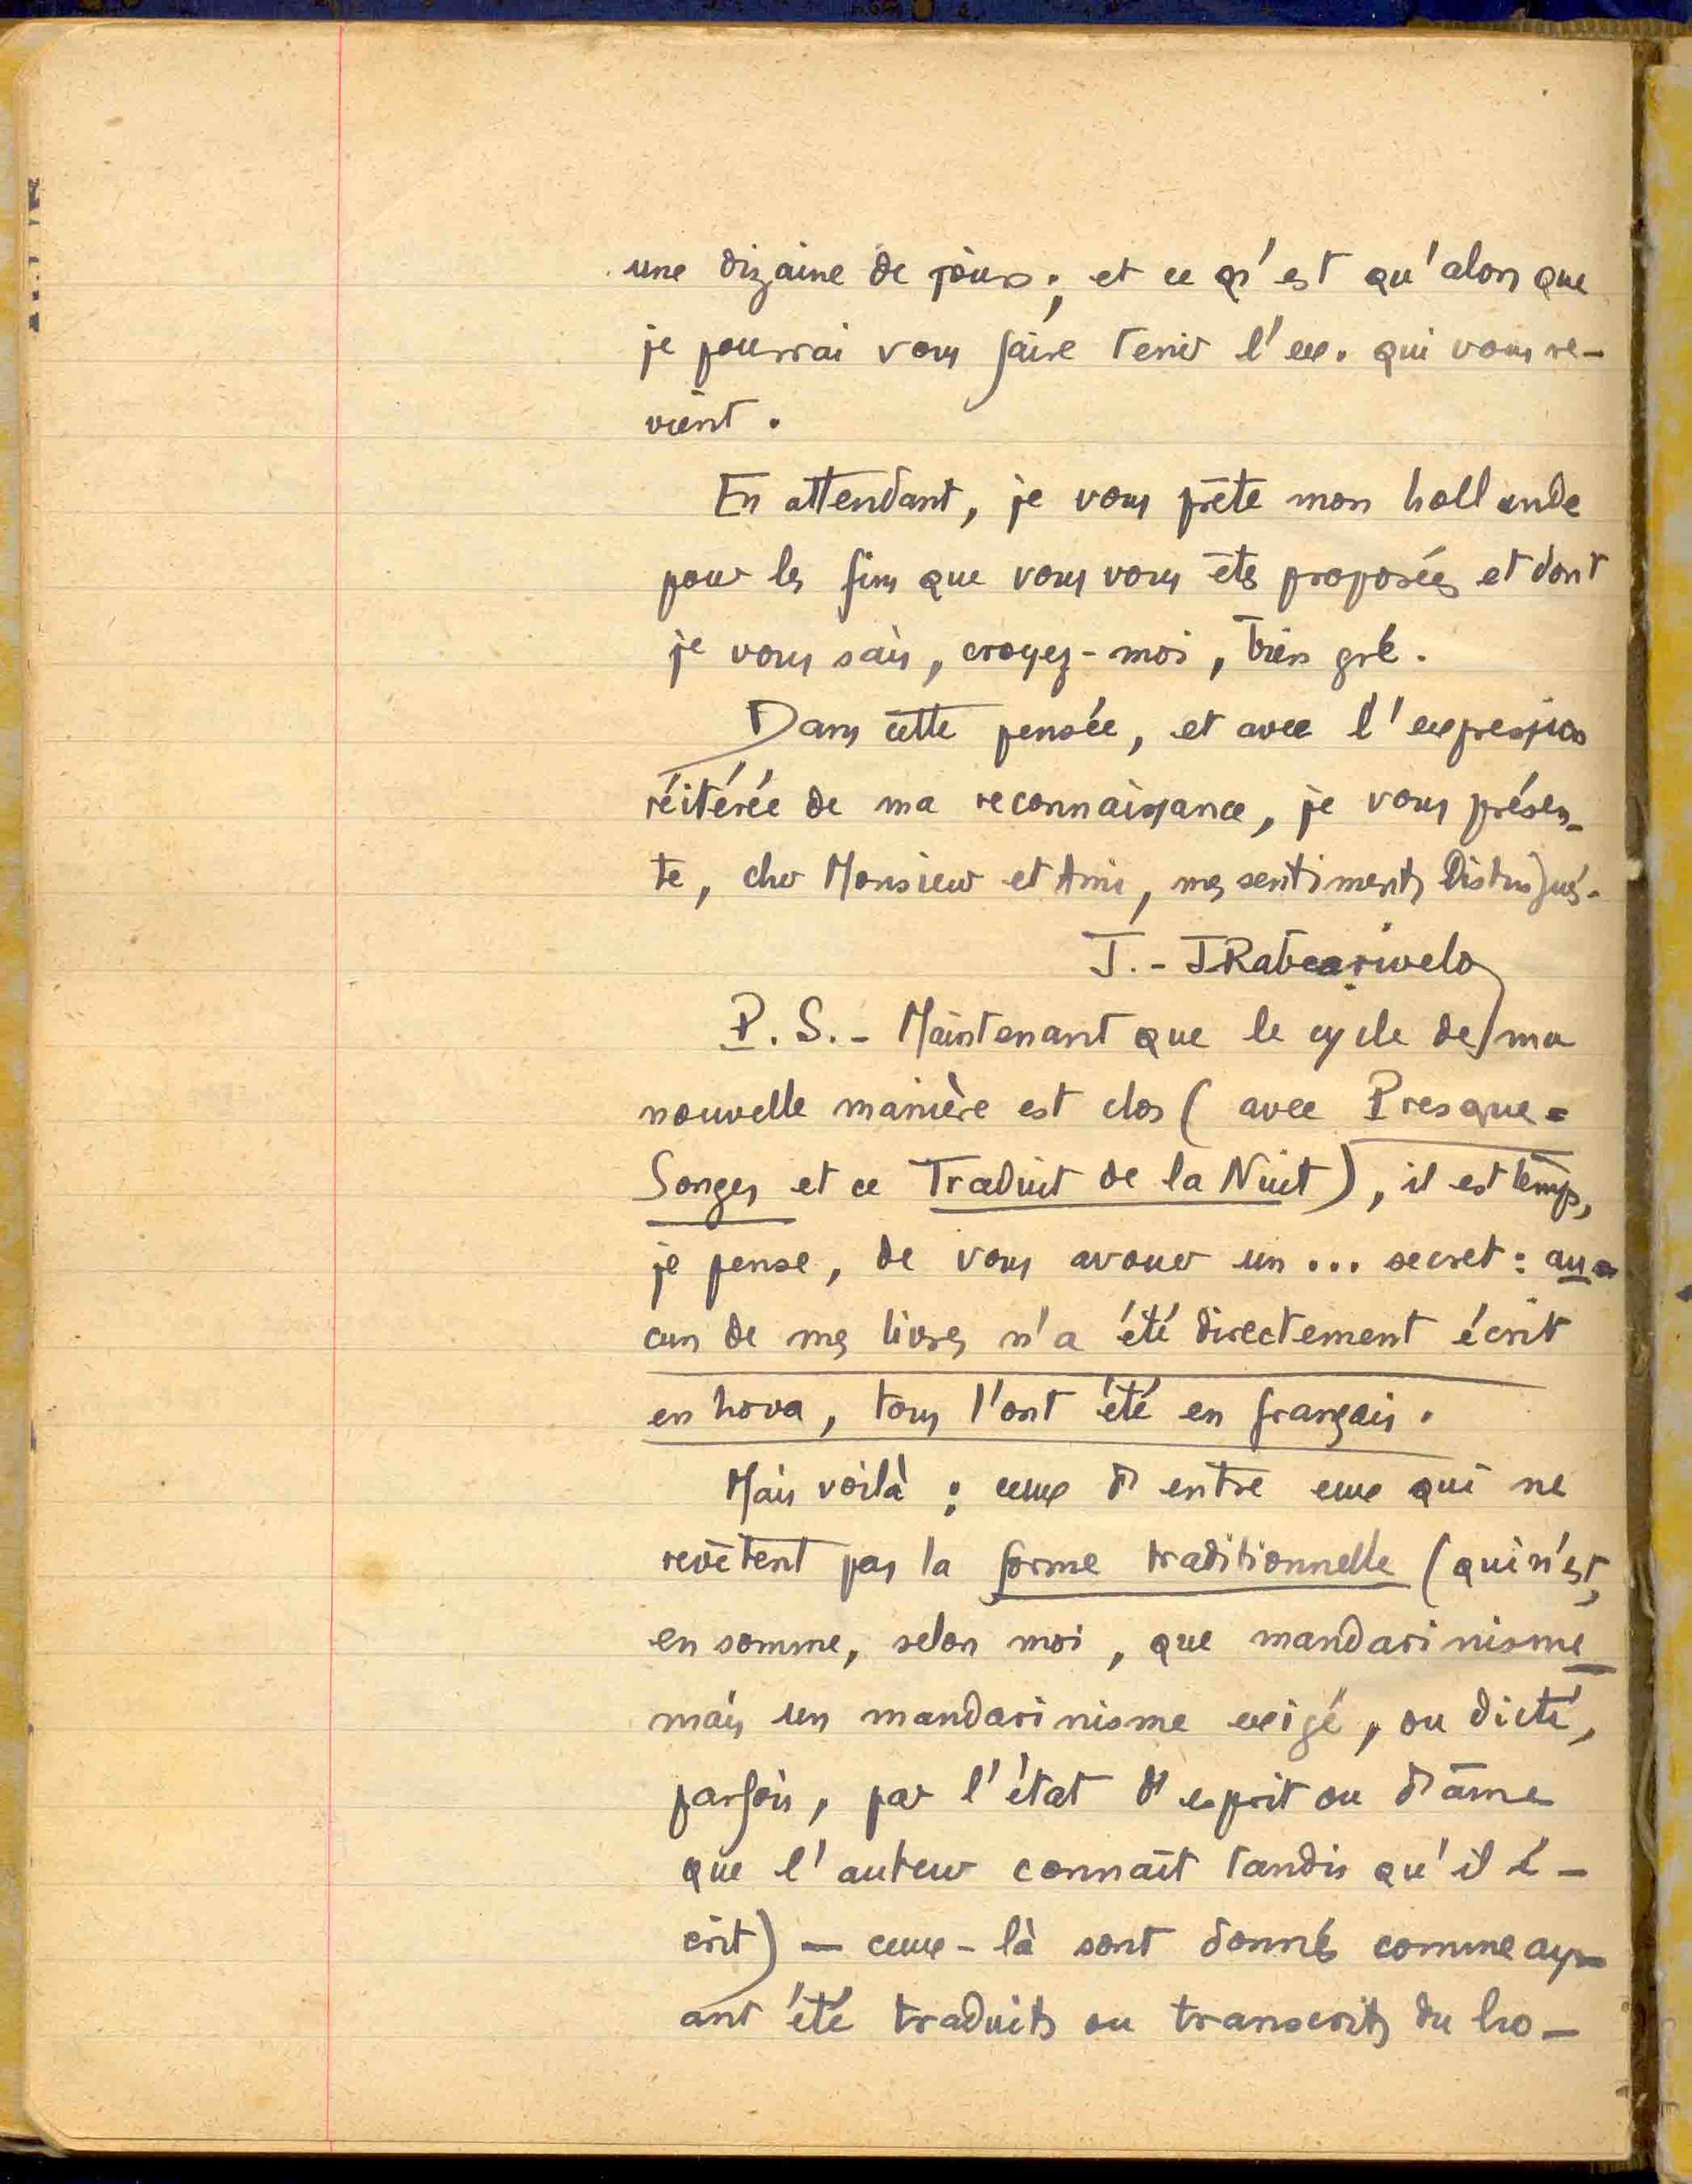 une dizaine de jours ; et ce n'est qu'alors que
je pourrai vous faire tenir l'ex. qui vous re-
vient.
En attendant, je vous prête mon hollande
pour les fins que vous vous êtes proposées et dont
je vous sais, croyez-moi, bien gré.
Dans cette pensée, et avec l'expression
réitérée de ma reconnaissance, je vous présen-
te, cher Monsieur et Ami, mes sentiments distingués.
J.-J Rabearivelo
P.S. - Maintenant que le cycle de ma
nouvelle manière est clos (avec Presque-
Songes et ce Traduit de la Nuit), il est temps,
je pense, de vous avouer un... secret : au-
cun de mes livres n'a été directement écrit
en hova, tous l'ont été en français.
Mais voilà : ceux d'entre eux qui ne
revêtent pas la forme traditionnelle (qui n'est,
en somme, selon moi, que mandarinisme _
mais un mandarinisme exigé, ou dicté,
parfois, par l'état d'esprit ou d'âme
que l'auteur connaît tandis qu'il é-
crit) — ceux-là sont donnés comme ay-
ant été traduits ou transcrits du ho-